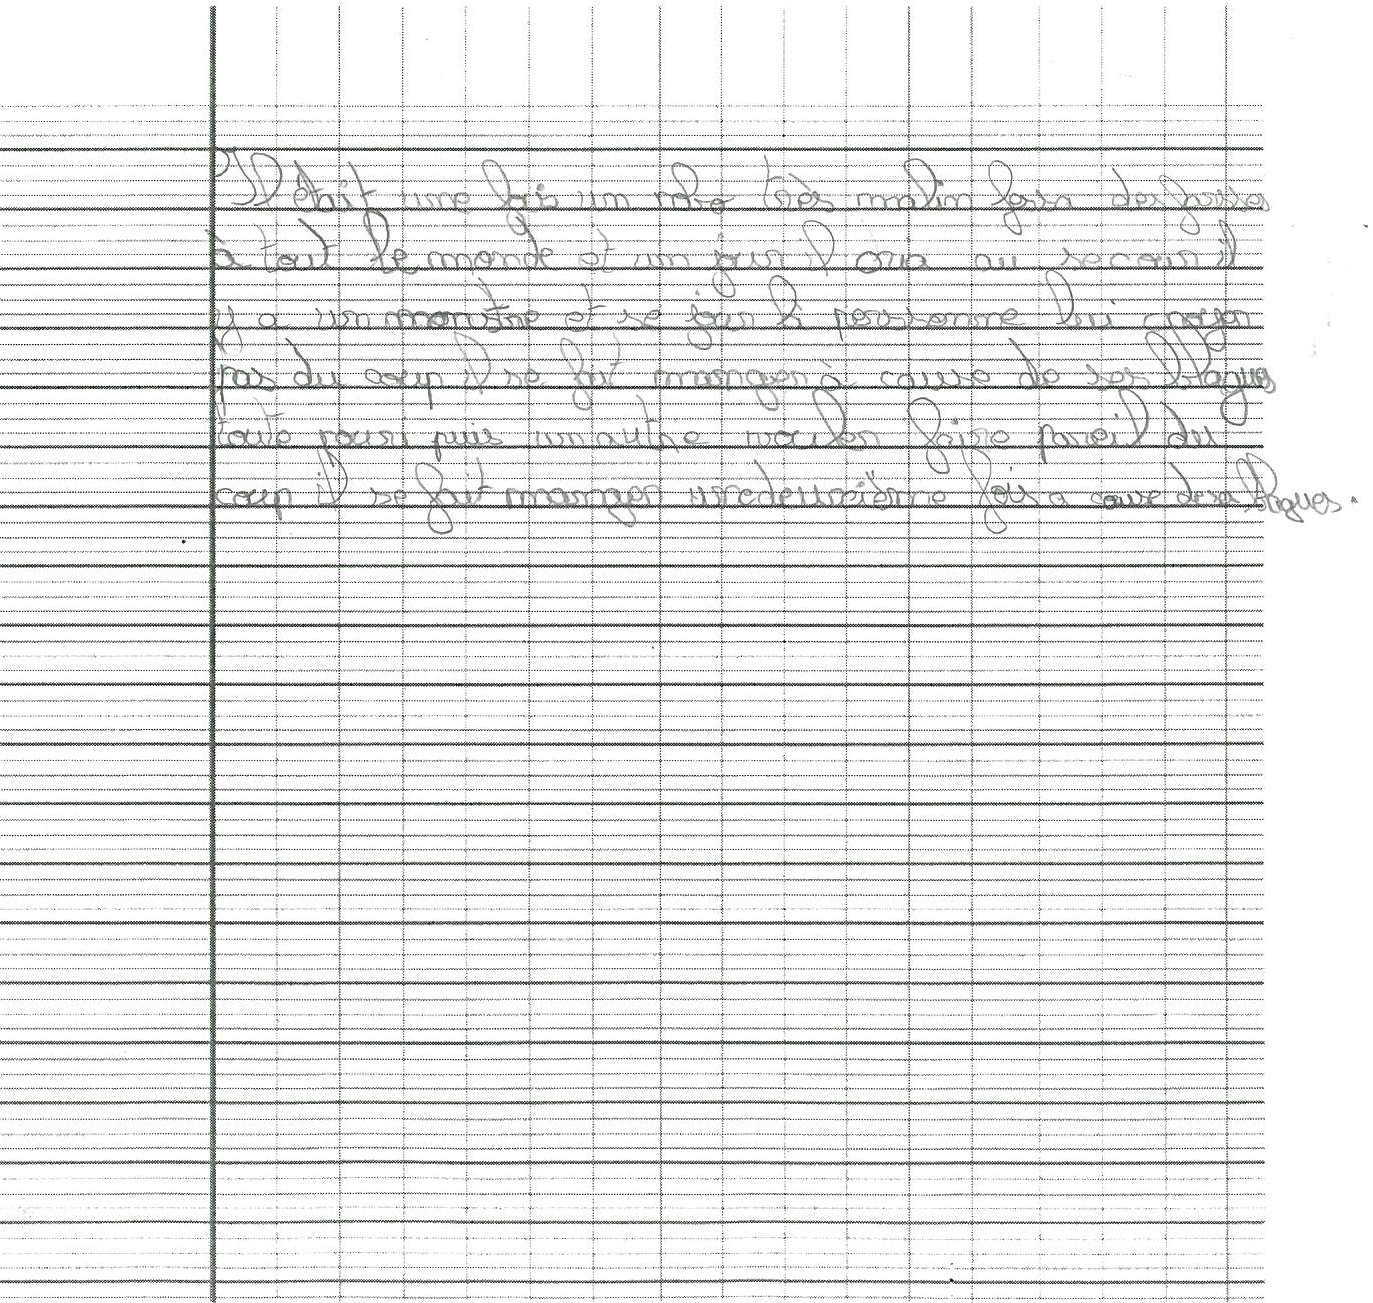 Il était une fois un très malin des farses
à tout le monde et un jour il cria au secour il
y a un monstre et se jour là personne lui croyer
pas du coup il se fait manger à cause de ses blagues
toute pouri puis un autre vouler faire pareil du
coup il se fait manger une deuxième fois a cause de sa blagues.